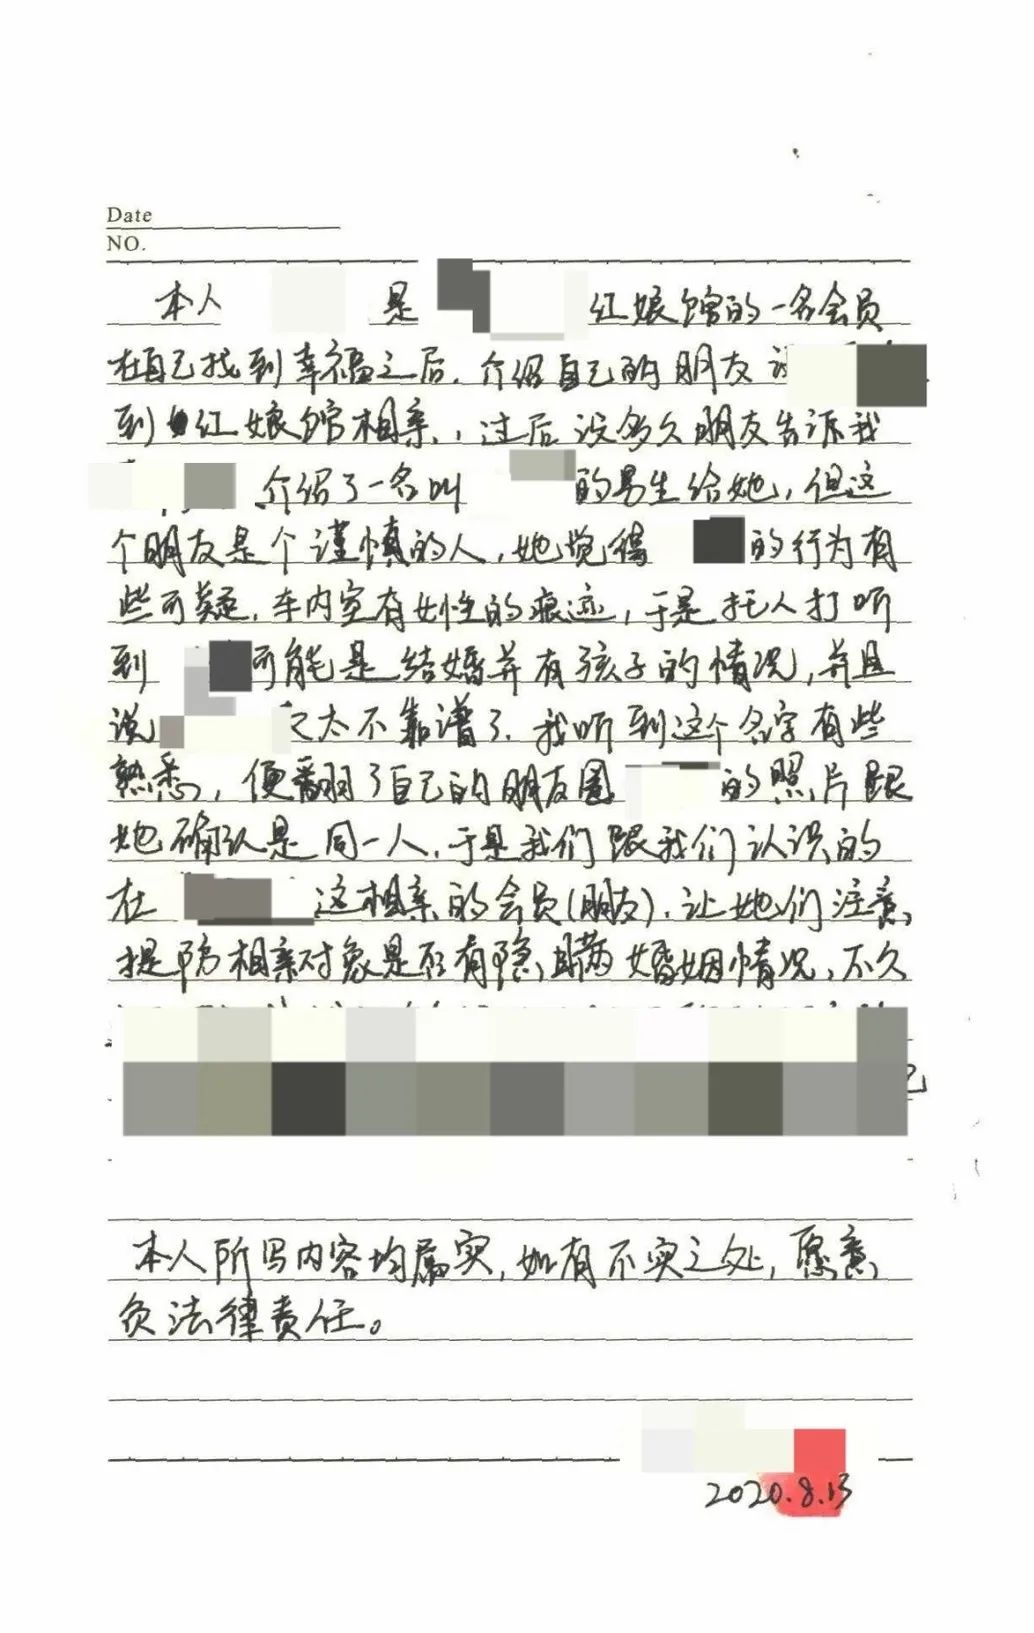 Date
NO.
本人 是 红娘馆的一名会员
在自己找到幸福之后.介绍自己的朋友
到红娘馆相亲,过后没多久朋友告诉我
介绍了一名叫 的男生给她,但这
个朋友是个谨慎的人,她觉得 的行为有
些可疑.车内室有女性的痕迹,于是托人打听
到 可能是结婚并有孩子的情况,并且
说 太不靠谱了.我听到这个名字有些
熟悉,便翻了自己的朋友圈 的照片跟
她确认是同一人.于是我们跟我们认识的
在 这相亲的会员(朋友).让她们注意
提防相亲对象是否有隐瞒婚姻情况,不久
本人所写内容均属实,如有不实之处,愿意
负法律责任。
2020.8.13